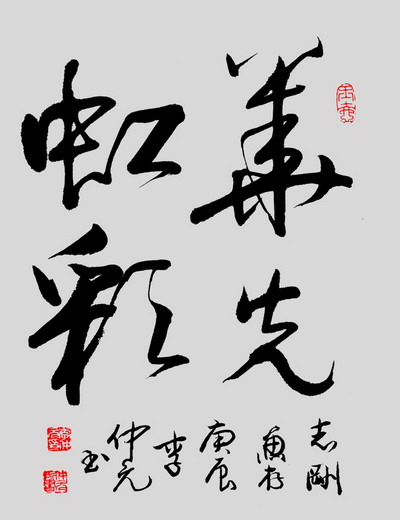 華光
虹彩
志剛
惠存
庚辰
李
仲元
书